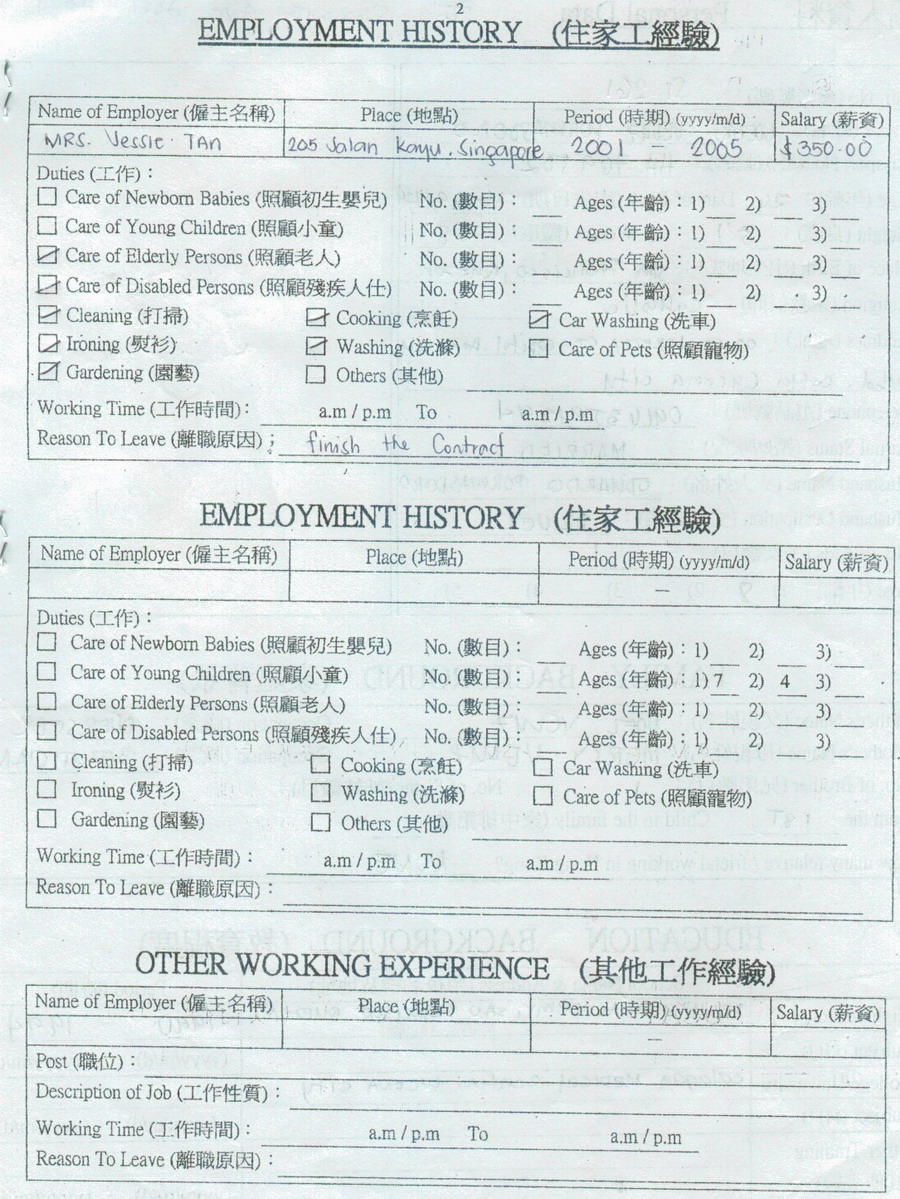 2
EMPLOYMENT HISTORY (住家工經驗)
Name of Employer (僱主名稱) Place (地點) Period (時期) (yyyy/m/d) Salary (薪資)
MRS. Jessie TAn 205 Jalan Kayu, Singapore 2001 – 2005 $350.00
Duties (工作) :
Care of Newborn Babies (照顧初生嬰兒) No. (數目) : Ages (年齡) : 1) 2) 3)
Care of Young Children (照顧小童) No. (數目) : Ages (年齡) : 1) 2) 3)
Care of Elderly Persons (照顧老人) No. (數目) : Ages (年齡) : 1) 2) 3)
Care of Disabled Persons (照顧殘疾人仕) No. (數目) : Ages (年齡) : 1) 2) 3)
Cleaning (打掃) Cooking (烹飪) Car Washing (洗車)
Ironing (熨衫) Washing (洗滌) Care of Pets (照顧寵物)
Gardening (園藝) Others (其他)
Working Time (工作時間) : a.m / p.m To a.m / p.m
Reason To Leave (離職原因) : finish the Contract
EMPLOYMENT HISTORY (住家工經驗)
Name of Employer (僱主名稱) Place (地點) Period (時期) (yyyy/m/d) Salary (薪資)
–
Duties (工作) :
Care of Newborn Babies (照顧初生嬰兒) No. (數目) : Ages (年齡) : 1) 2) 3)
Care of Young Children (照顧小童) No. (數目) : Ages (年齡) : 1) 2) 4 3)
Care of Elderly Persons (照顧老人) No. (數目) : Ages (年齡) : 1) 2) 3)
Care of Disabled Persons (照顧殘疾人仕) No. (數目) : Ages (年齡) : 1) 2) 3)
Cleaning (打掃) Cooking (烹飪) Car Washing (洗車)
Ironing (熨衫) Washing (洗滌) Care of Pets (照顧寵物)
Gardening (園藝) Others (其他)
Working Time (工作時間) : a.m / p.m To a.m / p.m
Reason To Leave (離職原因) :
OTHER WORKING EXPERIENCE (其他工作經驗)
Name of Employer (僱主名稱) Place (地點) Period (時期) (yyyy/m/d) Salary (薪資)
–
Post (職位) :
Description of Job (工作性質) :
Working Time (工作時間) : a.m / p.m To a.m / p.m
Reason To Leave (離職原因) :